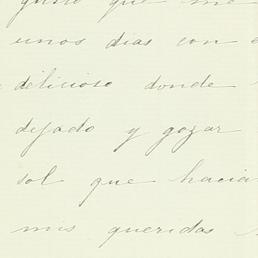 gusto que me
unos dias con
delicioso donde
dejado y gozar
sol que hacia
mis queridas